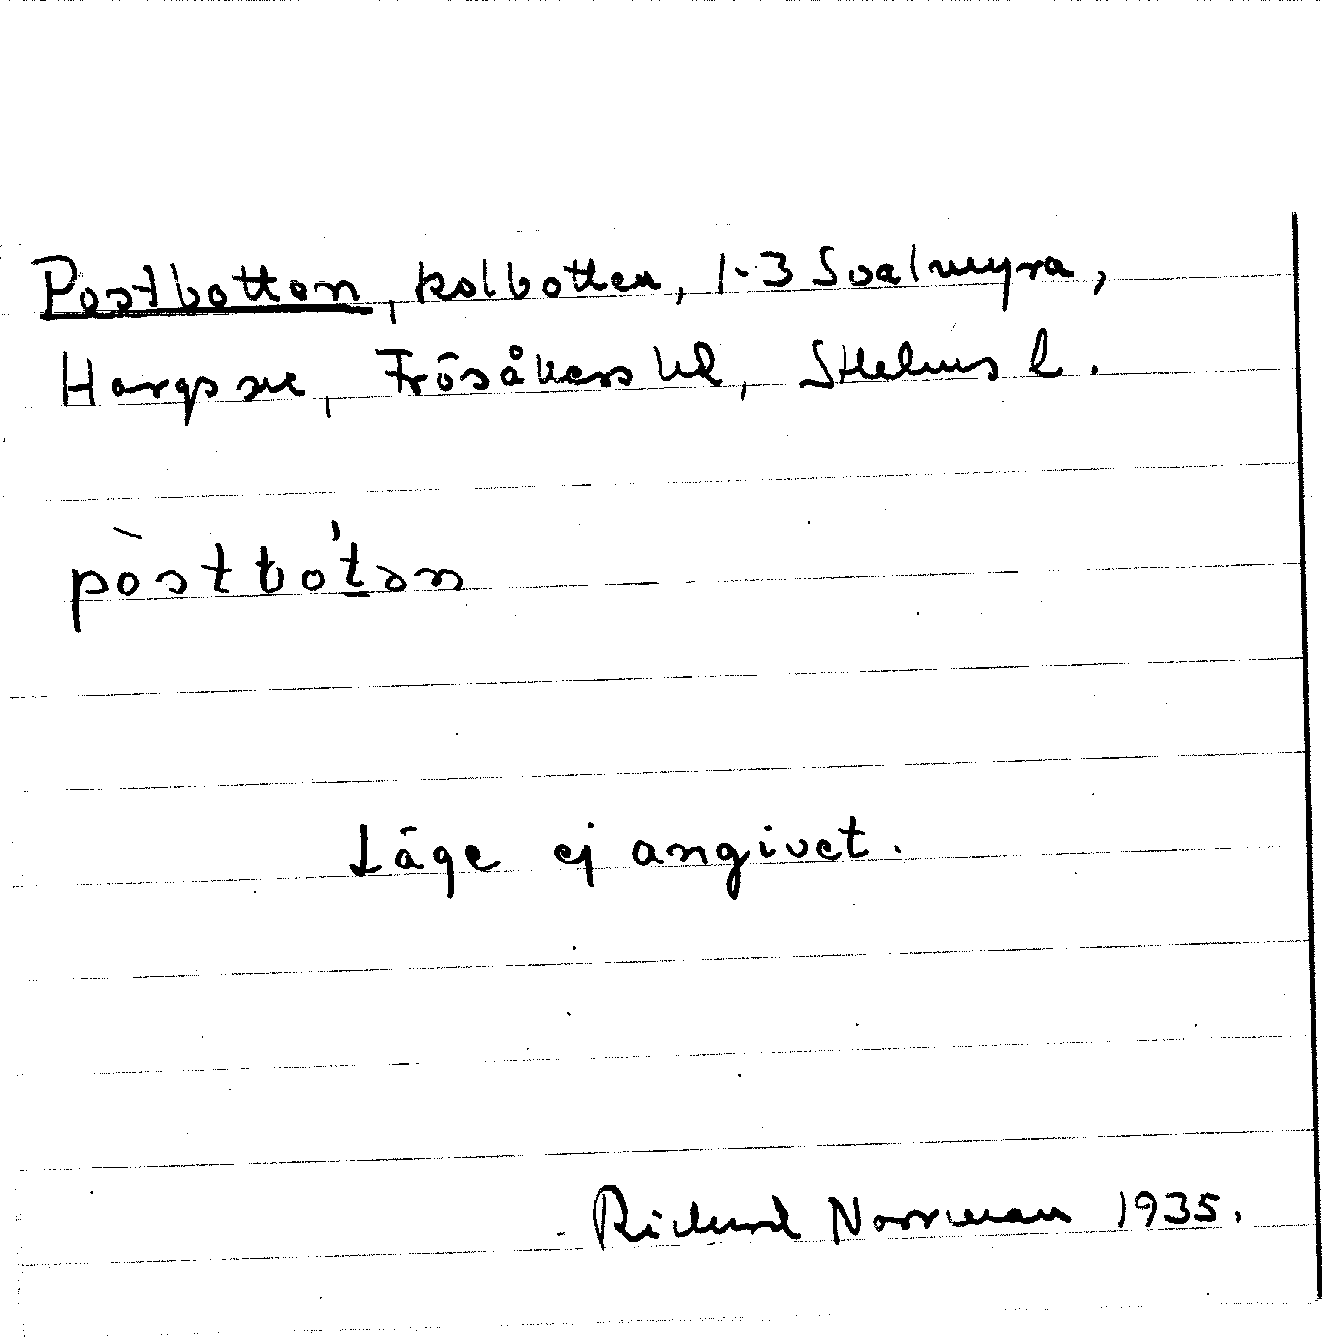 Postbotten, kolbotten, 1-3 Svalmyra,
Hargs sn, Frösåkers hd, Sthlms l.
pòstbo'tən
Läge ej angivet.
Richard Norrman 1935.